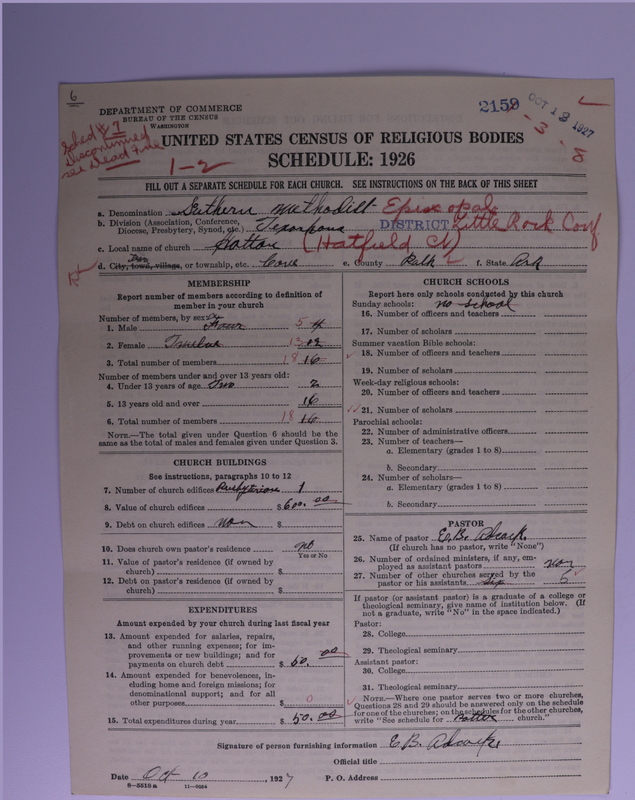 6
DEPARTMENT OF COMMERCE
BUREAU OF THE CENSUS
WASHINGTON
2159
OCT 12 1927
-3-8
Sched # 7
Discontinued
see Dead File
UNITED STATES CENSUS OF RELIGIOUS BODIES
1-2
SCHEDULE: 1926
FILL OUT A SEPARATE SCHEDULE FOR EACH CHURCH. SEE INSTRUCTIONS ON THE BACK OF THIS SHEET
a. Denomination Suthern Methodist Episcopal
b. Division (Association, Conference, Diocese, Presbytery, Synod, etc.) Texarkana DISTRICT Little Rock Conf
c. Local name of church Hatton (Hatfield Ct)
d. City, town, village, or township, etc. Cove e. County Polk f. State Ark
MEMBERSHIP
Report number of members according to definition of member in your church
Number of members, by sex:
1. Male Four 5 4
2. Female Twelve 13 12
3. Total number of members 18 16
Number of members under and over 13 years old:
4. Under 13 years of age Two 2
5. 13 years old and over 16
6. Total number of members 18 16
NOTE.—The total given under Question 6 should be the same as the total of males and females given under Question 3.
CHURCH BUILDINGS
See instructions, paragraphs 10 to 12
7. Number of church edifices 1
8. Value of church edifices $600.00
9. Debt on church edifices non $
10. Does church own pastor's residence no
Yes or No
11. Value of pastor's residence (if owned by church) $
12. Debt on pastor's residence (if owned by church) $
EXPENDITURES
Amount expended by your church during last fiscal year
13. Amount expended for salaries, repairs, and other running expenses; for improvements or new buildings; and for payments on church debt $50.00
14. Amount expended for benevolences, including home and foreign missions; for denominational support; and for all other purposes $ 0
15. Total expenditures during year $50.00
CHURCH SCHOOLS
Report here only schools conducted by this church
Sunday schools: no school
16. Number of officers and teachers
17. Number of scholars
Summer vacation Bible schools:
18. Number of officers and teachers
19. Number of scholars
Week-day religious schools:
20. Number of officers and teachers
21. Number of scholars
Parochial schools:
22. Number of administrative officers
23. Number of teachers—
a. Elementary (grades 1 to 8)
b. Secondary
24. Number of scholars—
a. Elementary (grades 1 to 8)
b. Secondary
PASTOR
25. Name of pastor E.B. Adcock
(If church has no pastor, write "None")
26. Number of ordained ministers, if any, employed as assistant pastors non
27. Number of other churches served by the pastor or his assistants six 5
If pastor (or assistant pastor) is a graduate of a college or theological seminary, give name of institution below. (If not a graduate, write "No" in the space indicated.)
Pastor:
28. College
29. Theological seminary
Assistant pastor:
30. College
31. Theological seminary
NOTE.—Where one pastor serves two or more churches, Questions 28 and 29 should be answered only on the schedule for one of the churches; on the schedules for the other churches, write "See schedule for Potter church."
Signature of person furnishing information E B. Adcock
Official title
Date Oct 10, 1927 P. O. Address
8-5518 a 11-9864